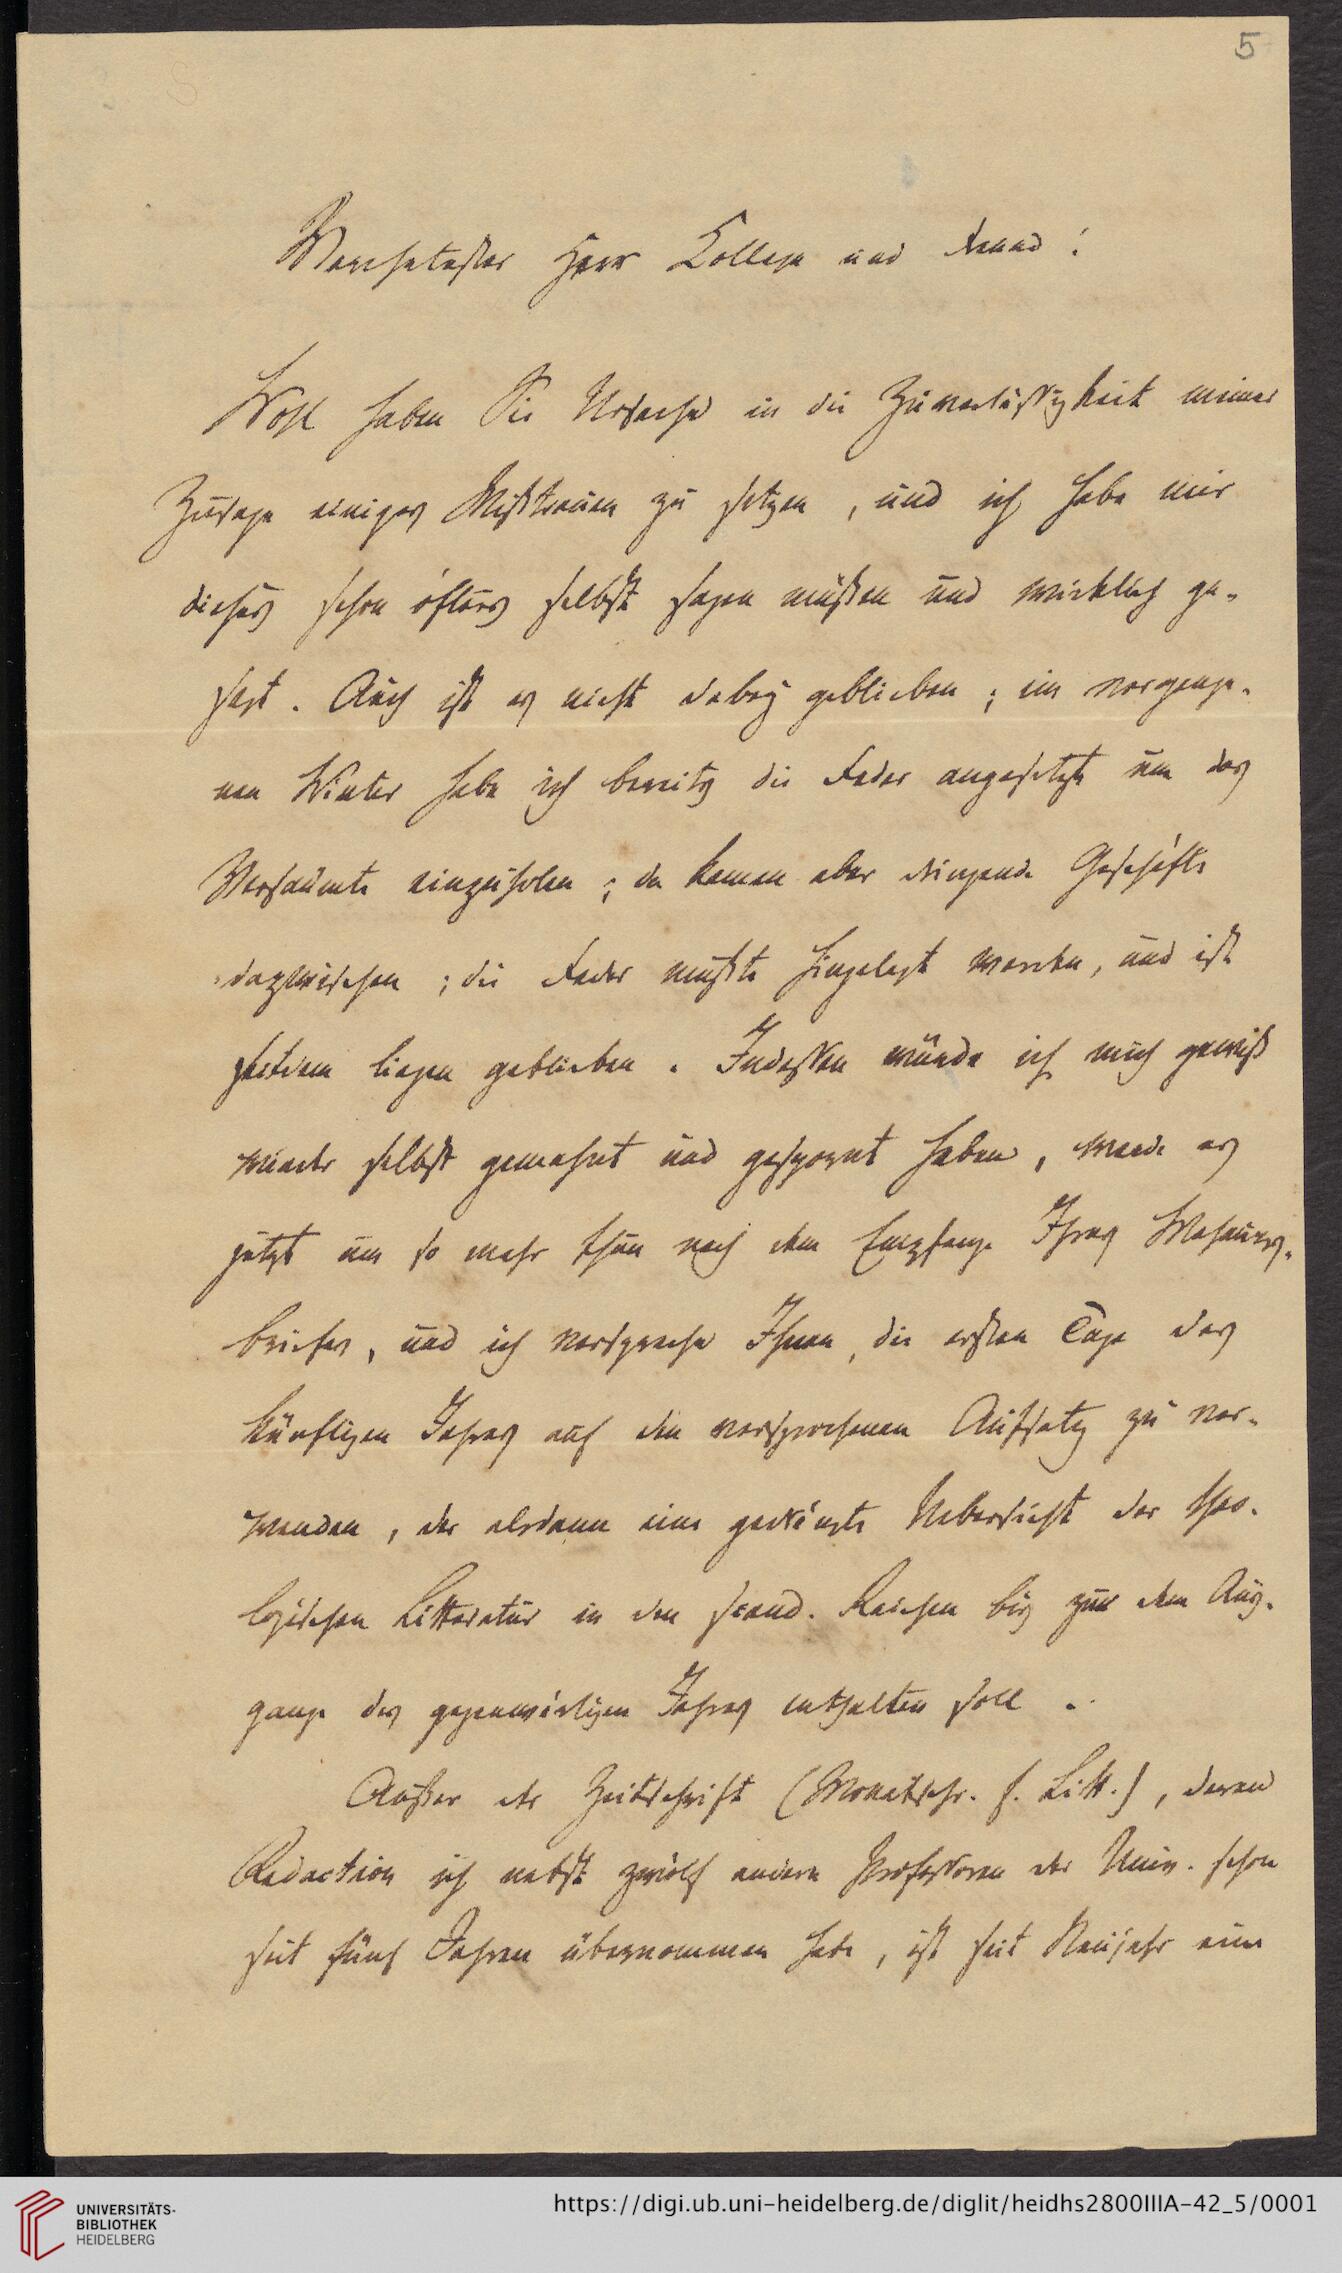 5
Verehrtester Herr College und Freund!
Wohl haben Sie Ursache in die Zuverlässigkeit meiner
Zusage einiges Mißtrauen zu setzen, und ich habe mir
dieses schon öfters selbst sagen müßen und wirklich ge-
sagt. Auch ist es nicht dabey geblieben; im vergange-
nen Winter habe ich bereits die Feder angesetzt um das
Versäumte einzuholen; da kamen aber dringende Geschäfte
dazwischen; die Feder mußte hingelegt werden, und ist
seitdem liegen geblieben. Indessen würde ich mich gewiß
wieder selbst gemahnt und gespornt haben, werde es
jetzt um so mehr thun nach dem Empfange Ihres Mahnungs-
briefes, und ich verspreche Ihnen, die ersten Tage des
künftigen Jahres auf den versprochenen Aufsatz zu ver-
wenden, der alsdann eine gedrängte Uebersicht der theo-
logischen Litteratur in den scand. Reichen bis zum dem Aus-
gange des gegenwärtigen Jahres enthalten soll.
Außer der Zeitschrift (Monatschr. f. Litt.), deren
Redaction ich nebst zwölf andern Professoren der Univ. schon
seit fünf Jahren übernommen habe, ist seit Neujahr eine
UNIVERSITÄTS-
BIBLIOTHEK
HEIDELBERG
https://digi.ub.uni-heidelberg.de/diglit/heidhs2800IIIA-42_5/0001